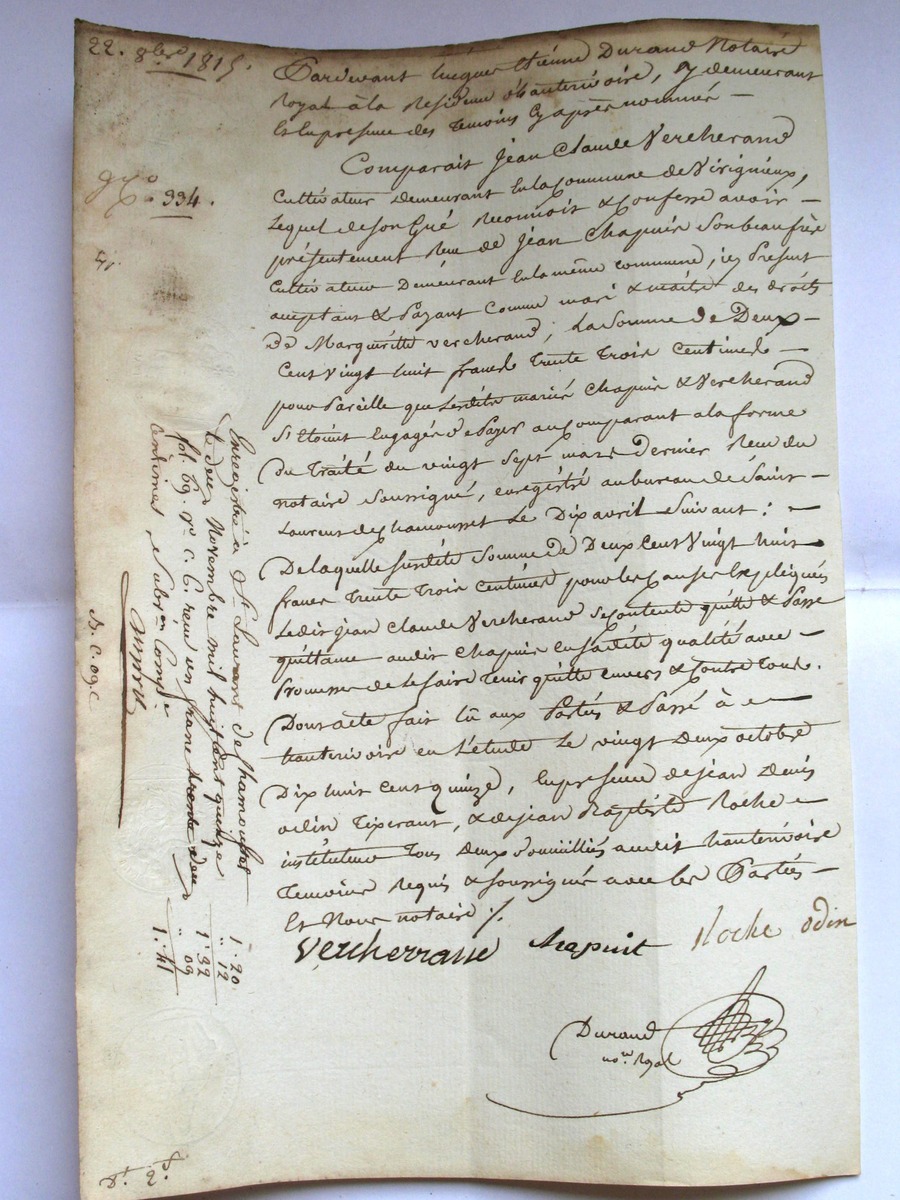 22. 8bre 1815.
Pardevant Jacques Etiénne Durand Notaire
Royal à la Residence d'hauterivoire, y demeurant
En la presence des temoins Cy après nommés —
Comparait Jean Claude Vercherand
Cultivateur Demeurant En la Commune de Virignieux,
Lequel de son Gré Reconnoit & Confesse avoir —
présentement Reçu de Jean Chapuis Son beaufrère
Cultivateur Demeurant En la même commune, icy Present
acceptant & Payant Comme mari & maître des droits
De Marguéritte vercherand, La Somme de Deux —
Cent Vingt huit francs Trente Trois Centimes —
pour Pareille que Lesdits mariés Chapuis & Vercherand
S'étoint Engagés de Payer au Comparant a la forme
Du Traité du vingt Sept mars Dernier Reçu du
notaire Soussigné, enregistré au bureau de Saint —
Laurent de Chamousset Le Dix avril Suivant: —
De laquelle Susdite Somme de Deux Cent Vingt huit
francs Trente Trois Centimes pour les Causes Expliquées
Ledit Jean Claude Vercherand Se Contente quitte & Passe
quittance audit Chapuis En sadite qualité avec —
Promesse de le faire Tenir quitte envers & Contre Tous.
Dont acte fait Lû aux Parties & Passé à —
hauterivoire en L'étude Le vingt Deux octobre
Dix huit Cent quinze, En presence de Jean Denis
odin Tixerant, & de Jean Baptiste Roche —
instituteur Tous Deux Domiciliés audit hauterivoire
Temoins Requis & Soussignés avec les Parties —
Et Nous notaire ./.
Vercherand Chapuit Roche odin
Durand
nore. Royal
334.
Enregistré à St. Laurent de Chamousset
Le deux Novembre mil huit cent quinze
fol. 69. Vo. C. 6. reçu un franc trente deux
Centimes, Subvon Comprise
1. 20
" 12
1. 32
" 09
1. 41